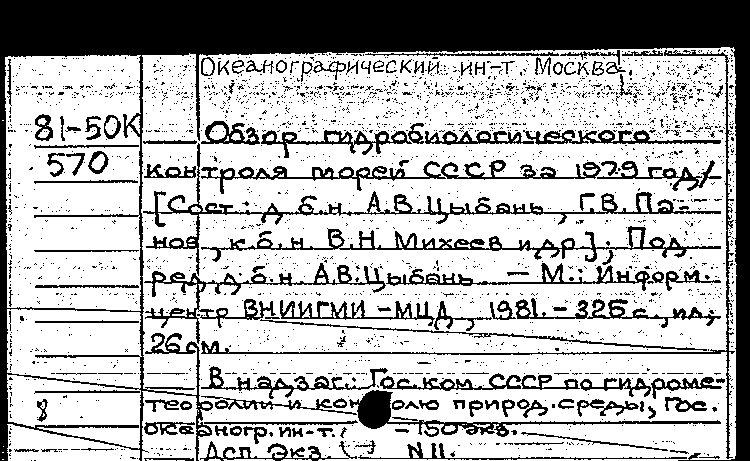 Океанографический ин-т. Москва.
81-50К
570
Обзор гидробиологического
контроля морей СССР за 1979 год/
[Сост.: д.б.н. А.В.Цыбань, Г.В. Па-
нов, к.б.н. В.Н. Михеев и др.]; Под
ред. д.б.н. А.В.Цыбань. — М.: Информ.
центр ВНИИГМИ-МЦД, 1981. - 325 с., ил.;
26 см.
В надзаг.: Гос. ком. СССР по гидроме-
теорологии и контролю природ. среды, Гос.
океаногр. ин-т. - 150 экз.
8
Дсп. Экз. N 11.